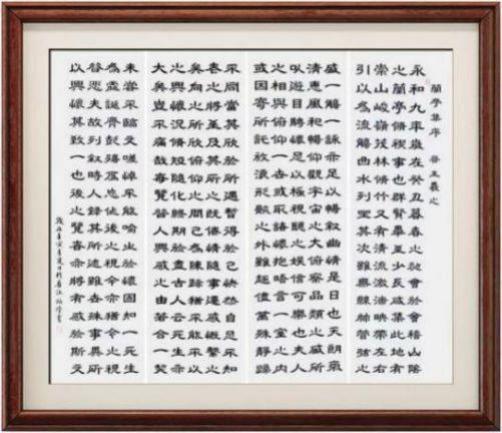 蘭亭集序 晉王羲之
永和九年歲在癸丑暮春之初會於會稽山陰
之蘭亭脩禊事也群賢畢至少長咸集此地有
崇山峻嶺茂林脩竹又有清流激湍映帶左右
引以為流觴曲水列坐其次雖無絲竹管弦之
盛一觴一詠亦足以暢敘幽情是日也天朗氣
清惠風和暢仰觀宇宙之大俯察品類之盛所
以遊目騁懷足以極視聽之娛信可樂也夫人
之相與俯仰一世或取諸懷抱晤言一室之內
或因寄所託放浪形骸之外雖趣萬殊靜躁
不同當其欣於所遇暫得於己快然自足不知
老之將至及其所之既倦情隨事遷感慨係之
矣向之所欣俯仰之間已為陳跡猶不能不以
之興懷況脩短隨化終期於盡古人云死生亦
大矣豈不痛哉每覽昔人興感之由若合一契
未嘗不臨文嗟悼不能喻之於懷固知一死生
為虛誕齊彭殤為妄作後之視今亦猶今之視
昔悲夫故列敘時人錄其所述雖世殊事異所
以興懷其致一也後之覽者亦將有感於斯文